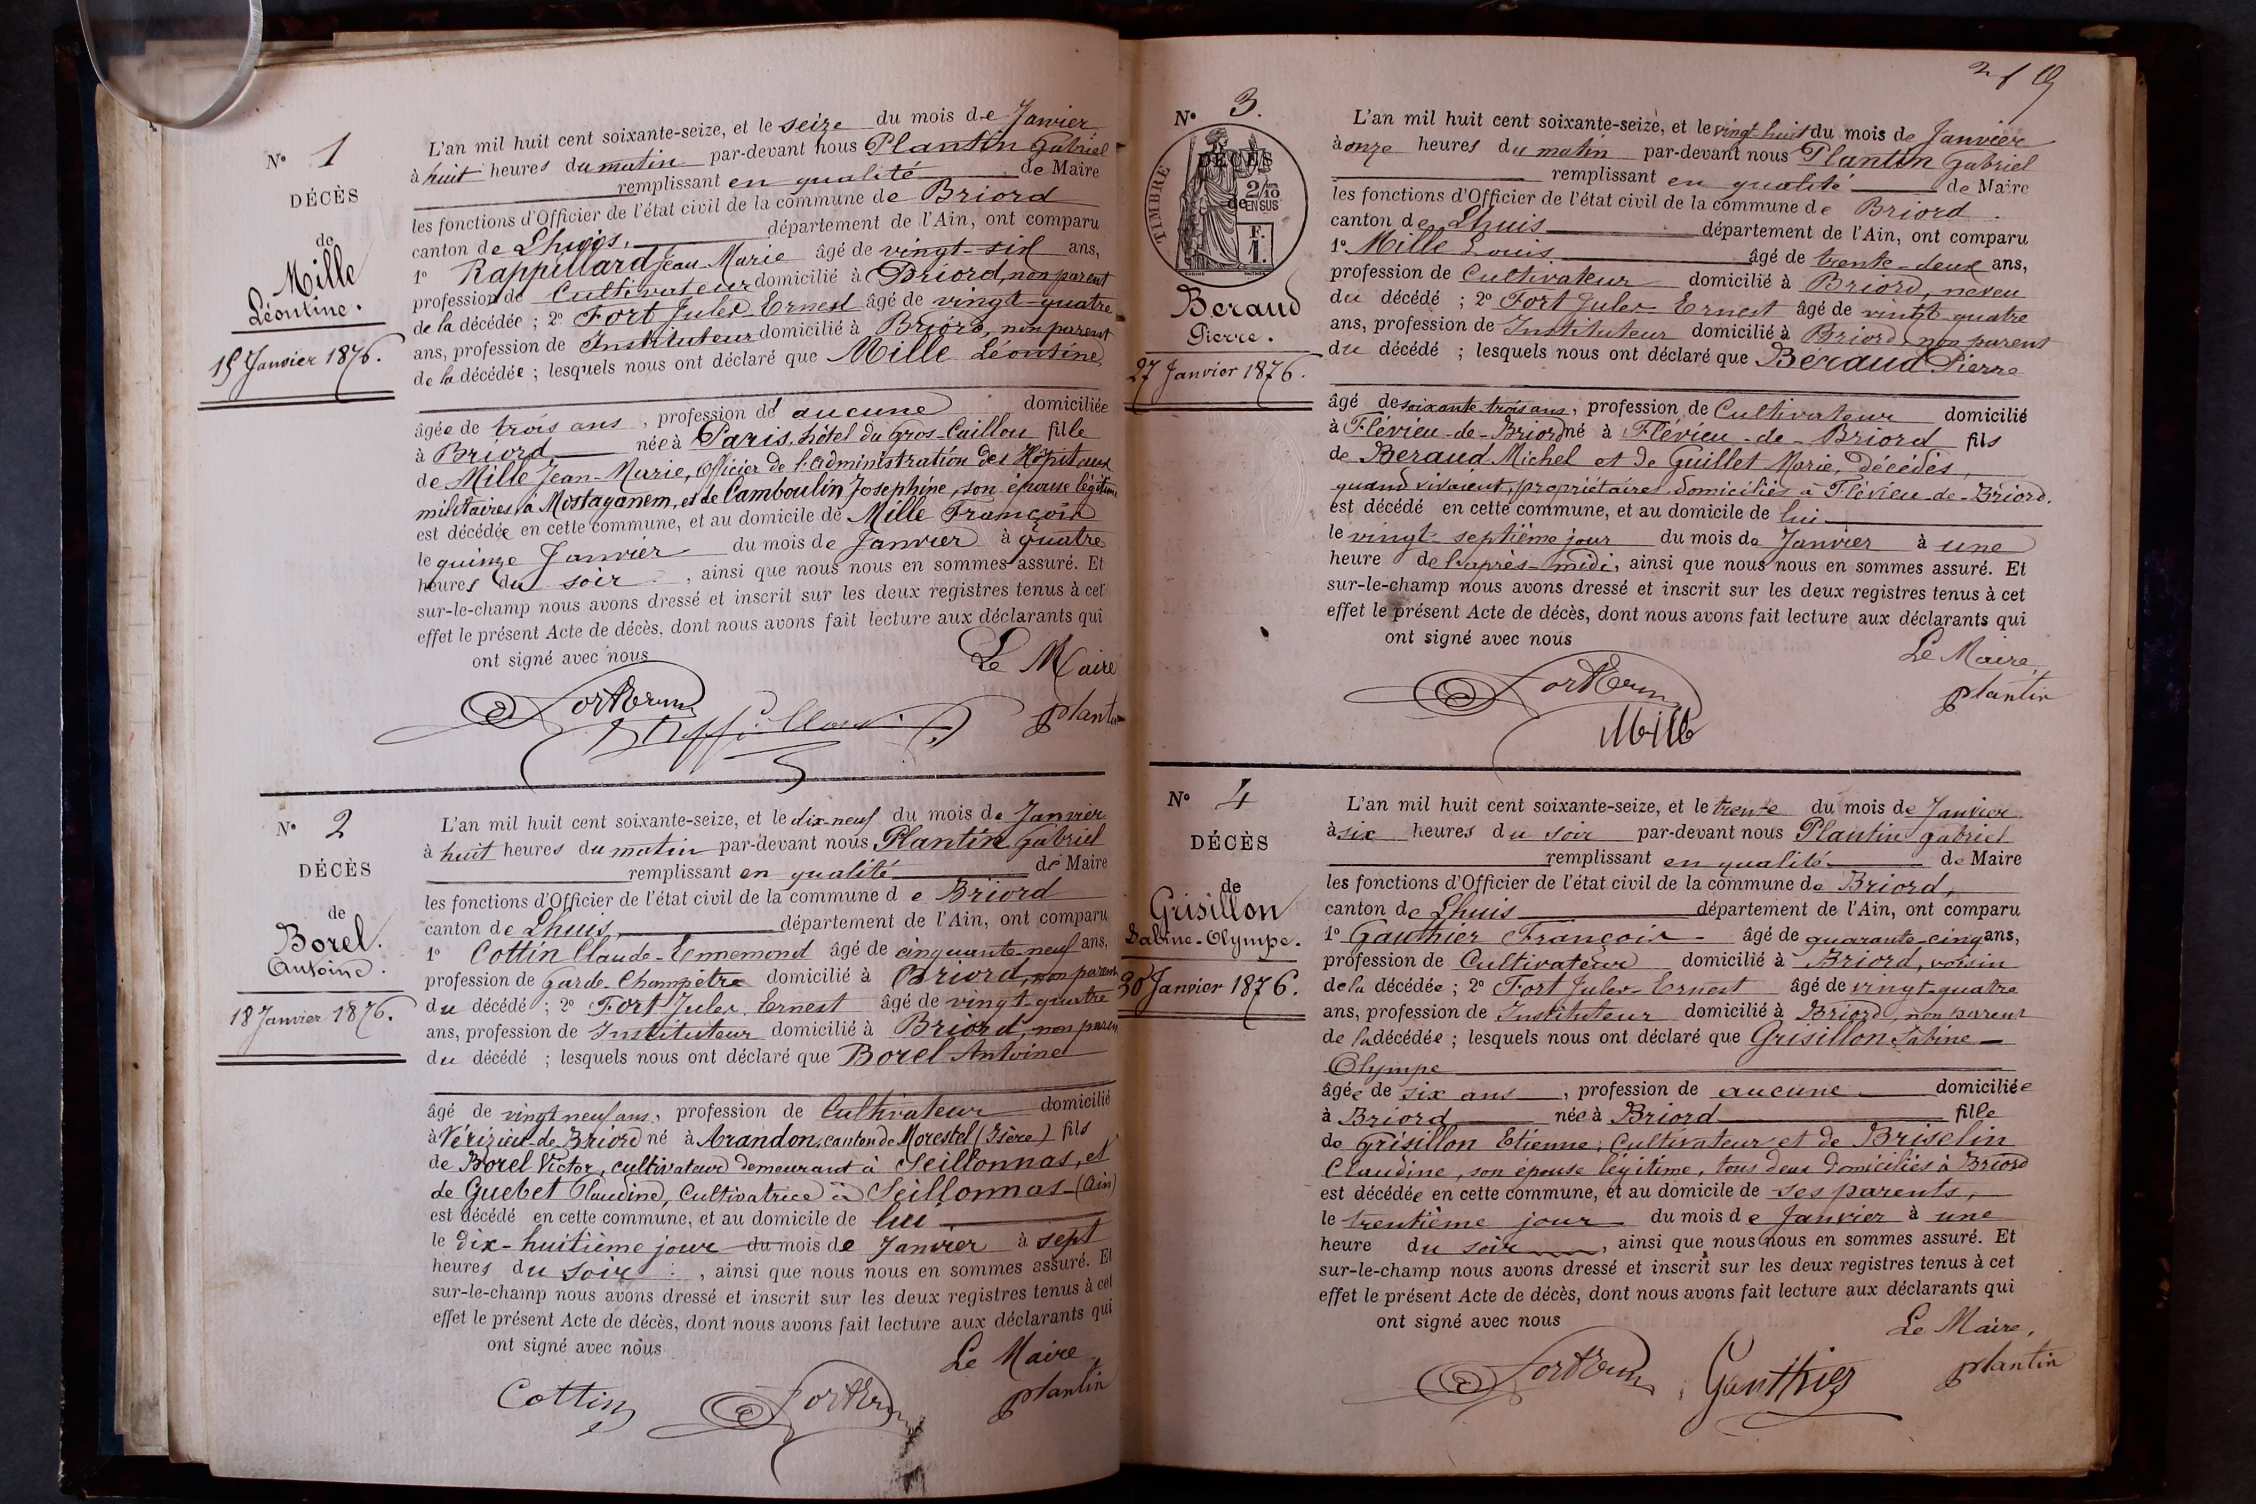 N° 1
DÉCÈS
de
Mille
Léontine.
15 Janvier 1876.
L'an mil huit cent soixante-seize, et le seize du mois de Janvier
à huit heures du matin par-devant nous Plantin Gabriel
remplissant en qualité de Maire
les fonctions d'Officier de l'état civil de la commune de Briord
canton de Lhuis, département de l'Ain, ont comparu
1° Rappillard Jean Marie âgé de vingt-six ans,
profession de Cultivateur domicilié à Briord, non parent
de la décédée ; 2° Fort Jules Ernest âgé de vingt-quatre
ans, profession de Instituteur domicilié à Briord, non parent
de la décédée ; lesquels nous ont déclaré que Mille Léontine
âgée de trois ans, profession de aucune domiciliée
à Briord née à Paris, hôtel du Gros-Caillou fille
de Mille Jean-Marie, Officier de l'administration des Hôpitaux
militaires à Mostaganem, et de Camboulin Josephine, son épouse légitime
est décédée en cette commune, et au domicile de Mille François
le quinze Janvier du mois de Janvier à quatre
heures du soir, ainsi que nous nous en sommes assuré. Et
sur-le-champ nous avons dressé et inscrit sur les deux registres tenus à cet
effet le présent Acte de décès, dont nous avons fait lecture aux déclarants qui
ont signé avec nous
Le Maire
Plantin
N° 2
DÉCÈS
de
Borel.
Antoine.
18 Janvier 1876.
L'an mil huit cent soixante-seize, et le dix-neuf du mois de Janvier
à huit heures du matin par-devant nous Plantin Gabriel
remplissant en qualité de Maire
les fonctions d'Officier de l'état civil de la commune de Briord
canton de Lhuis, département de l'Ain, ont comparu
1° Cottin Claude-Ennemond âgé de cinquante-neuf ans,
profession de Garde-Champêtre domicilié à Briord, non parent
du décédé ; 2° Fort Jules Ernest âgé de vingt-quatre
ans, profession de Instituteur domicilié à Briord, non paren
du décédé ; lesquels nous ont déclaré que Borel Antoine
âgé de vingt neuf ans, profession de Cultivateur domicilié
à Vérizieu-de-Briord né à Arandon, canton de Morestel (Isère) fils
de Borel Victor, cultivateur demeurant à Seillonnas, et
de Guebet Claudine, Cultivatrice à Seillonnas (Ain)
est décédé en cette commune, et au domicile de lui
le dix-huitième jour du mois de Janvier à sept
heures du soir, ainsi que nous nous en sommes assuré. Et
sur-le-champ nous avons dressé et inscrit sur les deux registres tenus à cet
effet le présent Acte de décès, dont nous avons fait lecture aux déclarants qui
ont signé avec nous
Le Maire
Cottin
Plantin
N° 3.
TIMBRE
DÉCÈS
2/10
de EN SUS
F.
1.
Beraud
Pierre.
27 Janvier 1876.
L'an mil huit cent soixante-seize, et le vingt huit du mois de Janvier
à onze heures du matin par-devant nous Plantin Gabriel
remplissant en qualité de Maire
les fonctions d'Officier de l'état civil de la commune de Briord.
canton de Lhuis département de l'Ain, ont comparu
1° Mille Louis âgé de trente-deux ans,
profession de Cultivateur domicilié à Briord, neveu
du décédé ; 2° Fort Jules Ernest âgé de vingt-quatre
ans, profession de Instituteur domicilié à Briord non parent
du décédé ; lesquels nous ont déclaré que Beraud Pierre
âgé de soixante trois ans, profession de Cultivateur domicilié
à Flévieu-de-Briord né à Flévieu-de-Briord fils
de Beraud Michel et de Guillet Marie, décédés,
quand vivaient, propriétaires domiciliés à Flévieu-de-Briord.
est décédé en cette commune, et au domicile de lui
le vingt-septième jour du mois de Janvier à une
heure de l'après-midi, ainsi que nous nous en sommes assuré. Et
sur-le-champ nous avons dressé et inscrit sur les deux registres tenus à cet
effet le présent Acte de décès, dont nous avons fait lecture aux déclarants qui
ont signé avec nous
Le Maire,
Plantin
Mille
N° 4
DÉCÈS
de
Grisillon
Sabine-Olympe.
30 Janvier 1876.
L'an mil huit cent soixante-seize, et le trente du mois de Janvier
à six heures du soir par-devant nous Plantin Gabriel
remplissant en qualité de Maire
les fonctions d'Officier de l'état civil de la commune de Briord,
canton de Lhuis département de l'Ain, ont comparu
1° Gauthier François âgé de quarante-cinq ans,
profession de Cultivateur domicilié à Briord, voisin
de la décédée ; 2° Fort Jules-Ernest âgé de vingt-quatre
ans, profession de Instituteur domicilié à Briord, non parent
de la décédée ; lesquels nous ont déclaré que Grisillon Sabine
Olympe
âgée de six ans, profession de aucune domiciliée
à Briord née à Briord fille
de Grisillon Etienne, Cultivateur et de Briselin
Claudine, son épouse légitime, tous deux domiciliés à Briord
est décédée en cette commune, et au domicile de ses parents,
le trentième jour du mois de Janvier à une
heure du soir, ainsi que nous nous en sommes assuré. Et
sur-le-champ nous avons dressé et inscrit sur les deux registres tenus à cet
effet le présent Acte de décès, dont nous avons fait lecture aux déclarants qui
ont signé avec nous
Le Maire,
Gauthier
Plantin